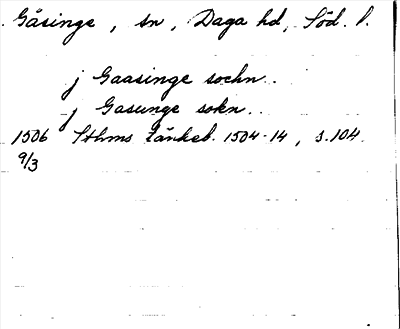 Gåsinge, sn, Daga hd, Söd. l.
j Gaasinge sochn..
j Gasunge sokn..
1506 Sthms tänkeb. 1504-14, s.104.
9/3